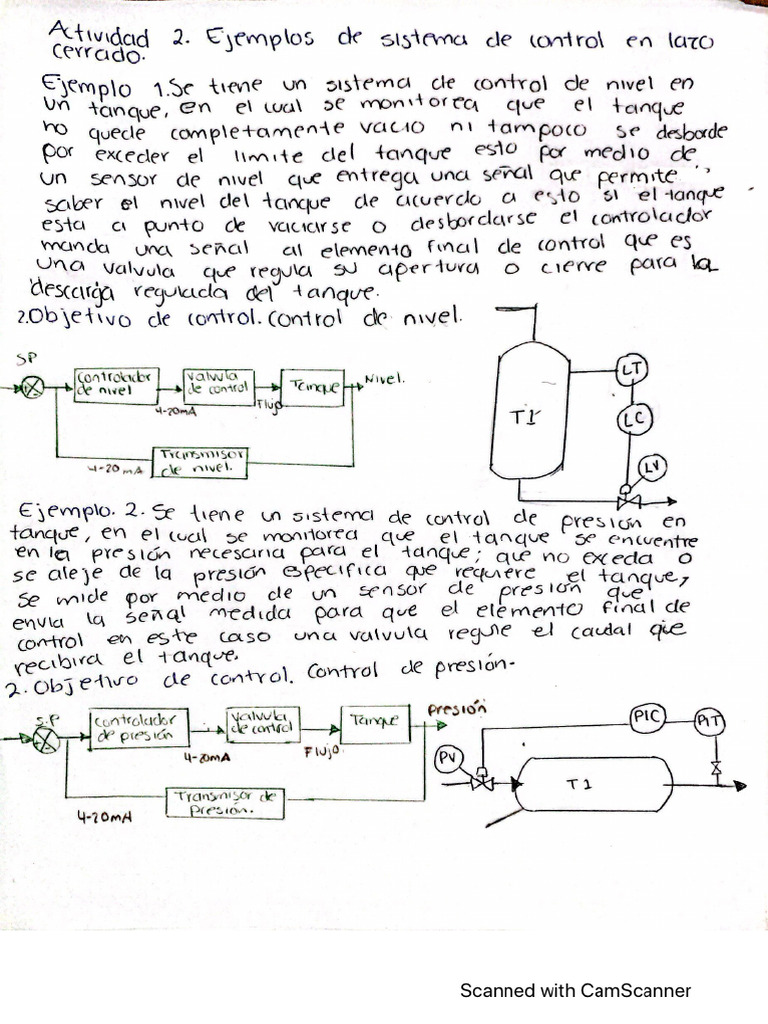 Actividad 2. Ejemplos de sistema de control en lazo
cerrado.
Ejemplo 1. Se tiene un sistema de control de nivel en
un tanque, en el cual se monitorea que el tanque
no quede completamente vacio ni tampoco se desborde
por exceder el limite del tanque esto por medio de
un sensor de nivel que entrega una señal que permite
saber el nivel del tanque de acuerdo a esto si el tanque
esta a punto de vaciarse o desbordarse el controlador
manda una señal al elemento final de control que es
una valvula que regula su apertura o cierre para la
descarga regulada del tanque.
2. Objetivo de control. Control de nivel.
SP
controlador
de nivel
4-20mA
valvula
de control
Flujo
Tanque
Nivel.
4-20 mA
Transmisor
de nivel.
T1
LT
LC
LV
Ejemplo. 2. Se tiene un sistema de control de presión en
tanque, en el cual se monitorea que el tanque se encuentre
en la presión necesaria para el tanque; que no exceda o
se aleje de la presión especifica que requiere el tanque,
se mide por medio de un sensor de presión que
envia la señal medida para que el elemento final de
control en este caso una valvula regule el caudal que
recibira el tanque.
2. Objetivo de control. Control de presión.
S.P
controlador
de presión
4-20mA
valvula
de control
Flujo.
Tanque
Presión
4-20mA
Transmisor de
presión.
PV
PIC
PIT
T1
Scanned with CamScanner